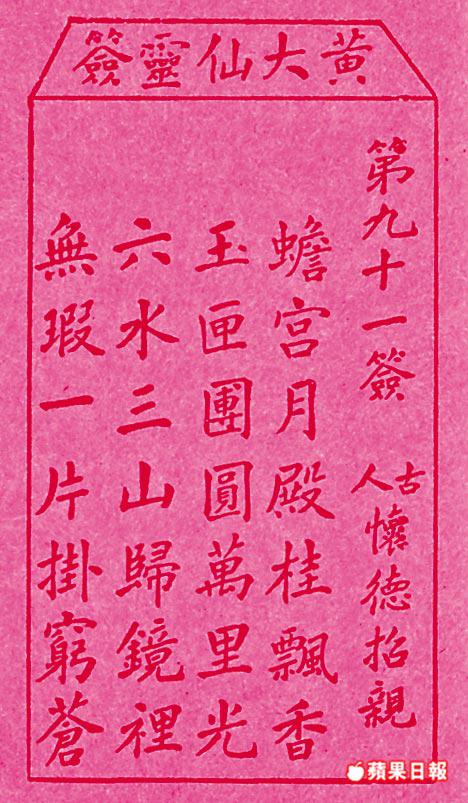 黃大仙靈簽
第九十一簽 古人懷德招親
蟾宮月殿桂飄香
玉匣團圓萬里光
六水三山歸鏡裡
無瑕一片掛窮蒼
蘋果日報